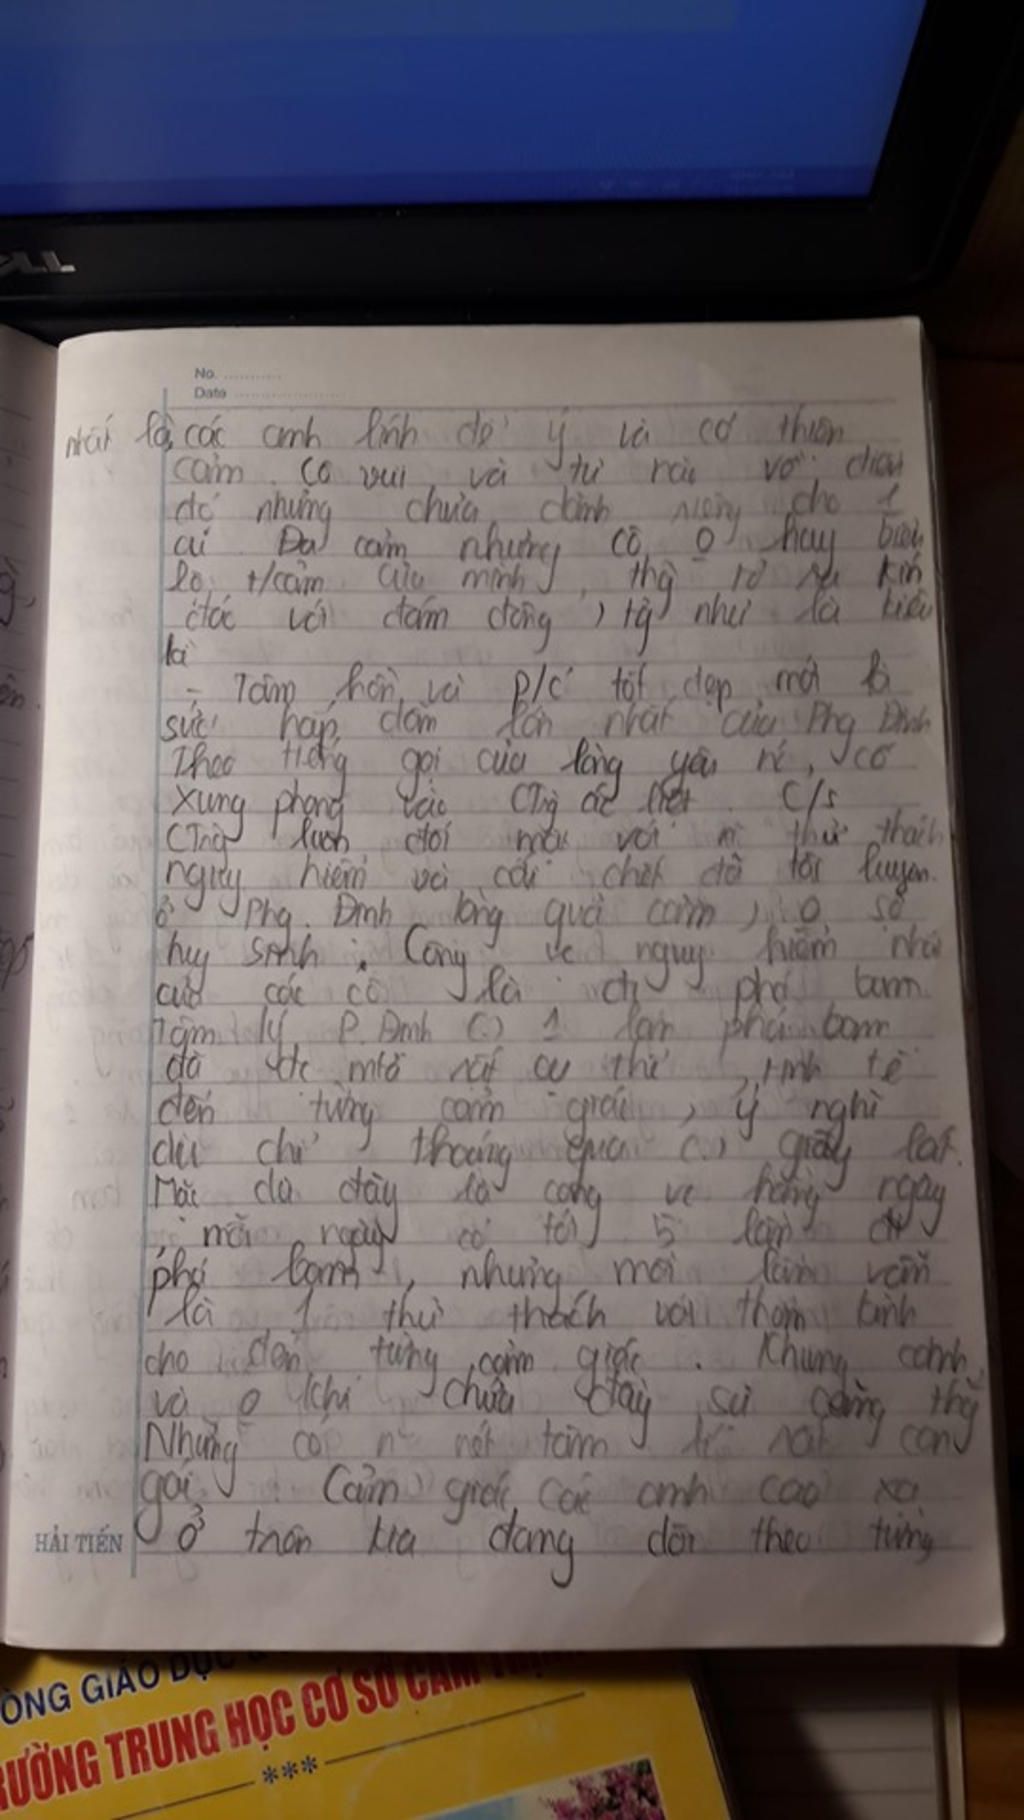 DELL
No. ............
Date ......................
nhất là, các anh lính để ý và có thiện
cảm. Cô vui và tự hào về điều
đó nhưng chưa dành riêng cho 1
ai. Đa cảm nhưng cô 0 hay biểu
lộ t/cảm của mình, tỏ ra kín
đáo với đám đông, tg như là kiêu
kì
- Tâm hồn và p/c tốt đẹp mới là
sức hấp dẫn lớn nhất của Phg Định
Theo tiếng gọi của lòng yêu nc, cô
xung phong vào CTrg ác liệt. C/s
CTrg luôn đối mặt với n thử thách
nguy hiểm và cái chết đã tôi luyện
ở Phg. Định lòng quả cảm, 0 sợ
hy sinh. Công vc nguy hiểm nhất
của các cô là đi phá bom.
Tâm lý P. Định (.) 1 lần phá bom
đã đc miêu tả rất cụ thể, tinh tế
đến từng cảm giác, ý nghĩ
dù chỉ thoáng qua (.) giây lát.
Mặc dù đây là công vc hằng ngày
mỗi ngày có tới 5 lần đi
phá bom, nhưng mỗi lần vẫn
là 1 thử thách với thần kinh
cho đến từng cảm giác. Khung cảnh
và 0 khí chứa đầy sự căng thg
Nhưng có n nét tâm lí rất con
gái. Cảm giác các anh cao xạ
ở trên kia đang dõi theo từng
HẢI TIẾN
ÒNG GIÁO DỤC &
RƯỜNG TRUNG HỌC CƠ SỞ CẨM
***